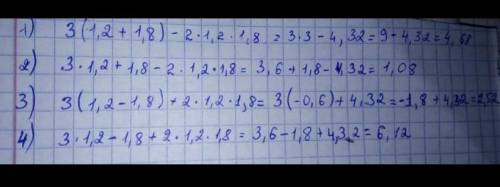 1) 3(1,2 + 1,8) - 2·1,2·1,8 = 3·3 - 4,32 = 9 - 4,32 = 4,68
2) 3·1,2 + 1,8 - 2·1,2·1,8 = 3,6 + 1,8 - 4,32 = 1,08
3) 3(1,2 - 1,8) + 2·1,2·1,8 = 3(-0,6) + 4,32 = -1,8 + 4,32 = 2,52
4) 3·1,2 - 1,8 + 2·1,2·1,8 = 3,6 - 1,8 + 4,32 = 6,12